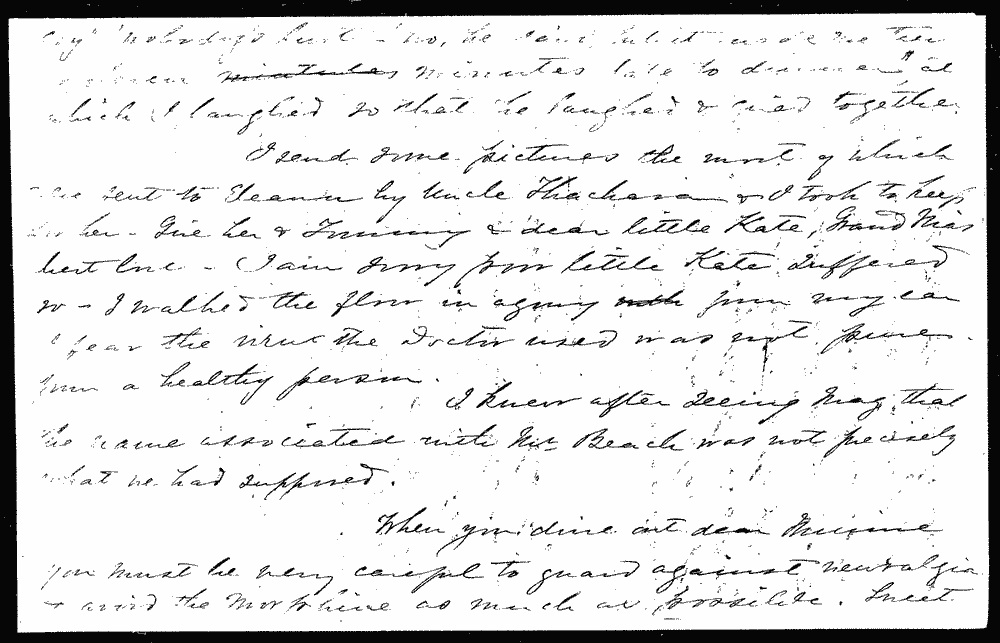 cry" nobody's hurt - no, he said, but it made me ten
minutes late to dinner" at
which I laughed so that he laughed & cried together
I send some pictures the most of which
were sent to Eleanor by Uncle & I took to keep
for her - Give her & Tommy & dear little Kate, Grand Mas
best love - I am sorry poor little Kate suffered
so - I walked the floor in agony from my ear
I fear the virus the Doctor used was not pure
from a healthy person.
I knew after seeing Mag, that
the name associated with Mr Beach was not precisely
what we had supposed.
When you dine out dear
you must be very careful to guard against neuralgia
& avoid the Morphine as much as possible. Sweet